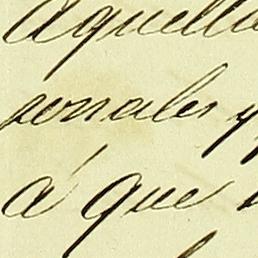 aquella
sonales y
á que